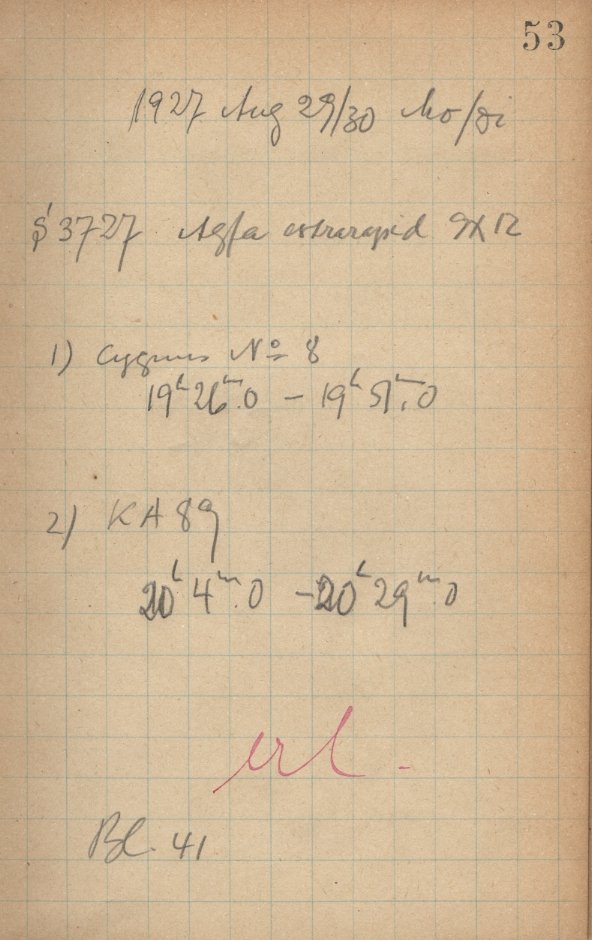 53
1927 Aug 29/30 Mo/Di
§ 3727 Agfa extrarapid 9X12
1) Cygnus No 8
19h 26m.0 – 19h 51m.0
2) KA 89
20h 4m.0 – 20h 29m.0
erl.
Bl. 41